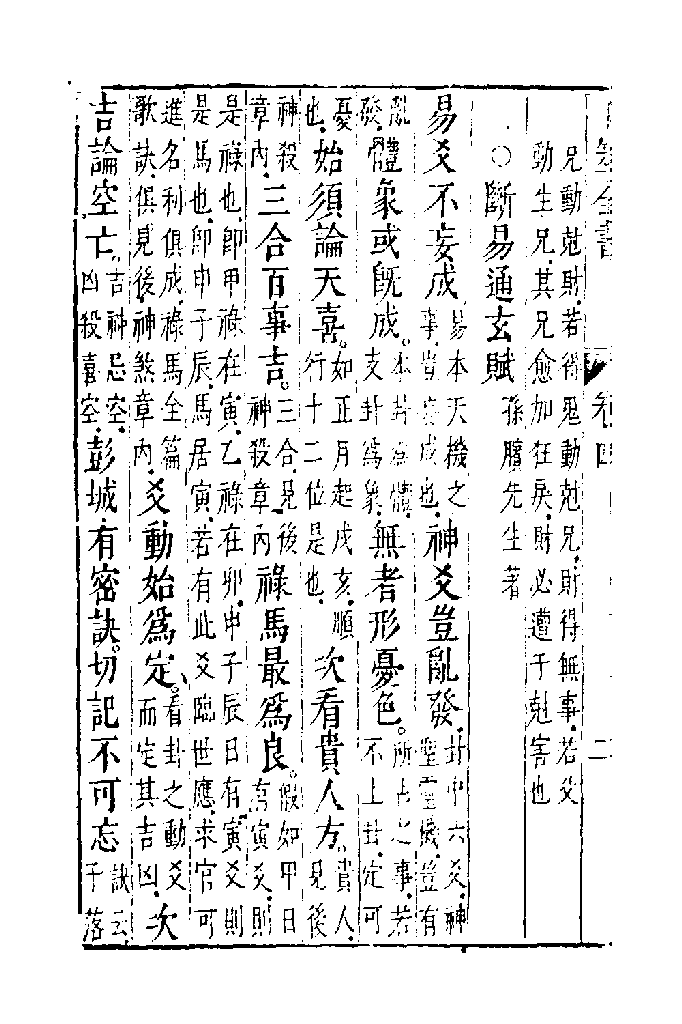 卷四
二
兄動尅財若得鬼動尅兄財得無事若父
動生兄其兄愈加狂戾財必遭于尅害也
○斷易通玄賦　孫臏先生著
易爻不妄成易本天機之事豈妄成也神爻豈亂發卦中六爻神聖靈機豈有
亂發體象或旣成本卦為體支卦爲象無者形憂色所占之事若不上卦定可
憂也始須論天喜如正月起戌亥順行十二位是也次看貴人方貴人見後
神殺章內三合百事吉三合見後神殺章內祿馬最爲良假如甲日有寅爻則
是祿也卽甲祿在寅乙祿在卯申子辰日有寅爻則
是馬也卽申子辰馬居寅若有此爻臨世應求官可
進名利俱成祿馬全篇歌訣俱見後神煞章內爻動始爲定看卦之動爻而定其吉凶次
吉論空亡吉神忌空凶殺喜空彭城有密訣切記不可忘訣云子落